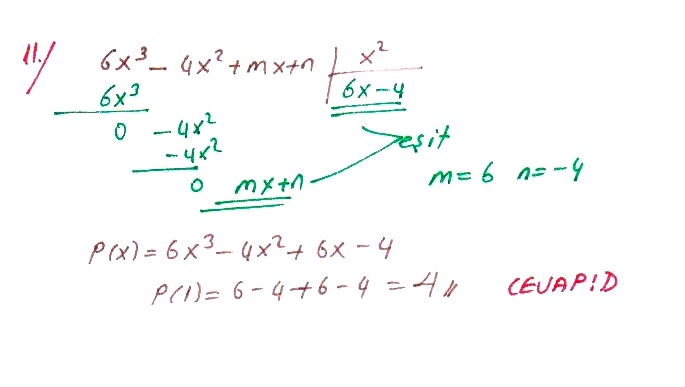 11./ 6x³ - 4x² + mx + n | x²
6x³ 6x - 4
0 - 4x²
- 4x² eşit
0 mx + n m = 6 n = -4
P(x) = 6x³ - 4x² + 6x - 4
P(1) = 6 - 4 + 6 - 4 = 4 // CEVAP: D